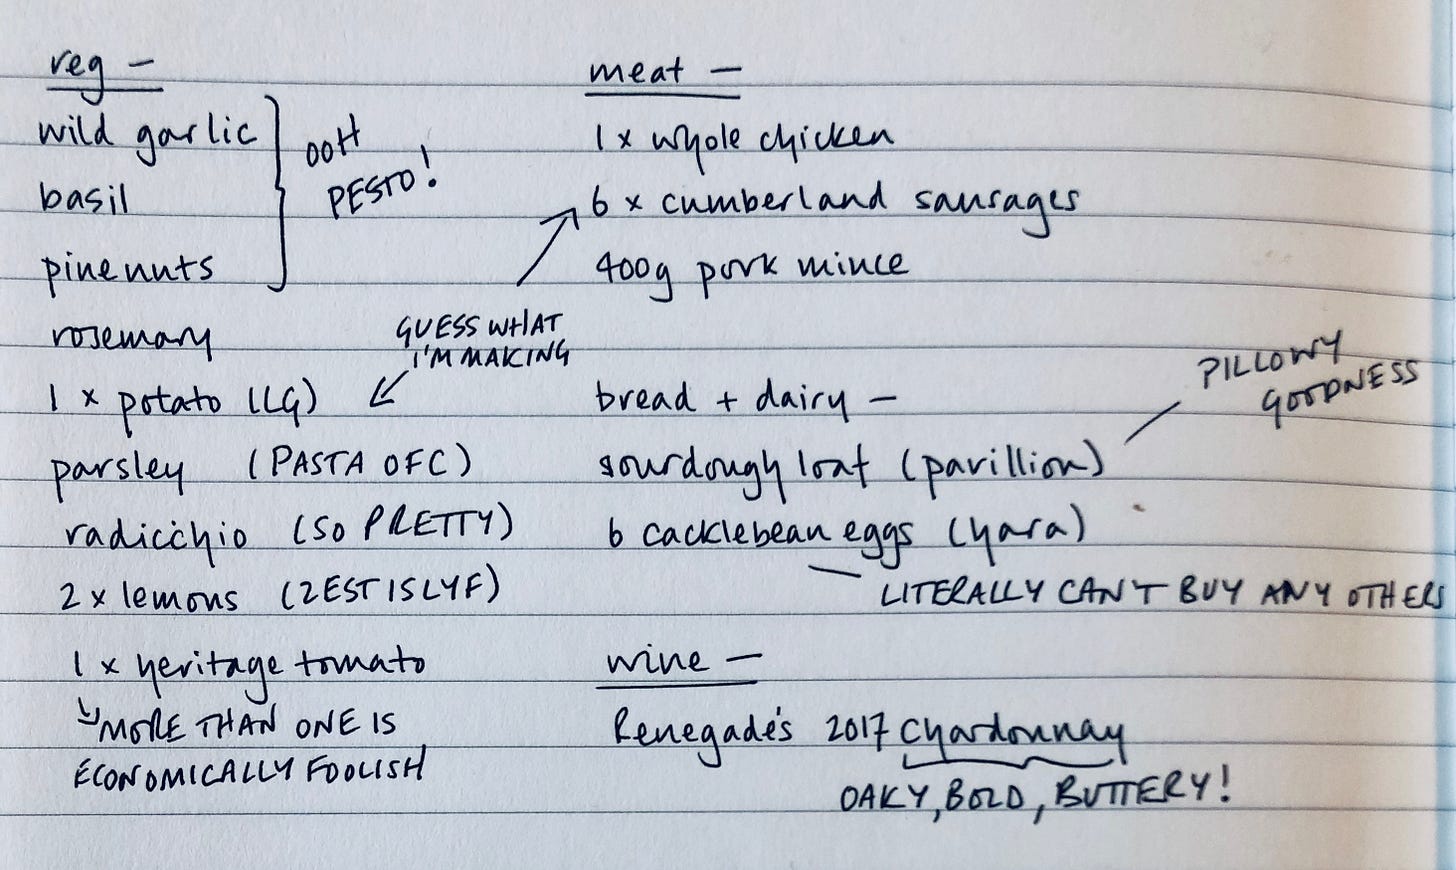 veg -
wild garlic
basil
pinenuts
OOH
PESTO!
rosemary
GUESS WHAT
I'M MAKING
1 x potato (LG)
parsley (PASTA OFC)
radicchio (SO PRETTY)
2 x lemons (ZEST IS LYF)
1 x heritage tomato
MORE THAN ONE IS
ECONOMICALLY FOOLISH
meat -
1 x whole chicken
6 x cumberland sausages
400g pork mince
bread + dairy -
sourdough loaf (pavillion)
PILLOWY
GOODNESS
6 cacklebean eggs (hara)
LITERALLY CAN'T BUY ANY OTHERS
wine -
Renegade's 2017 Chardonnay
OAKY, BOLD, BUTTERY!